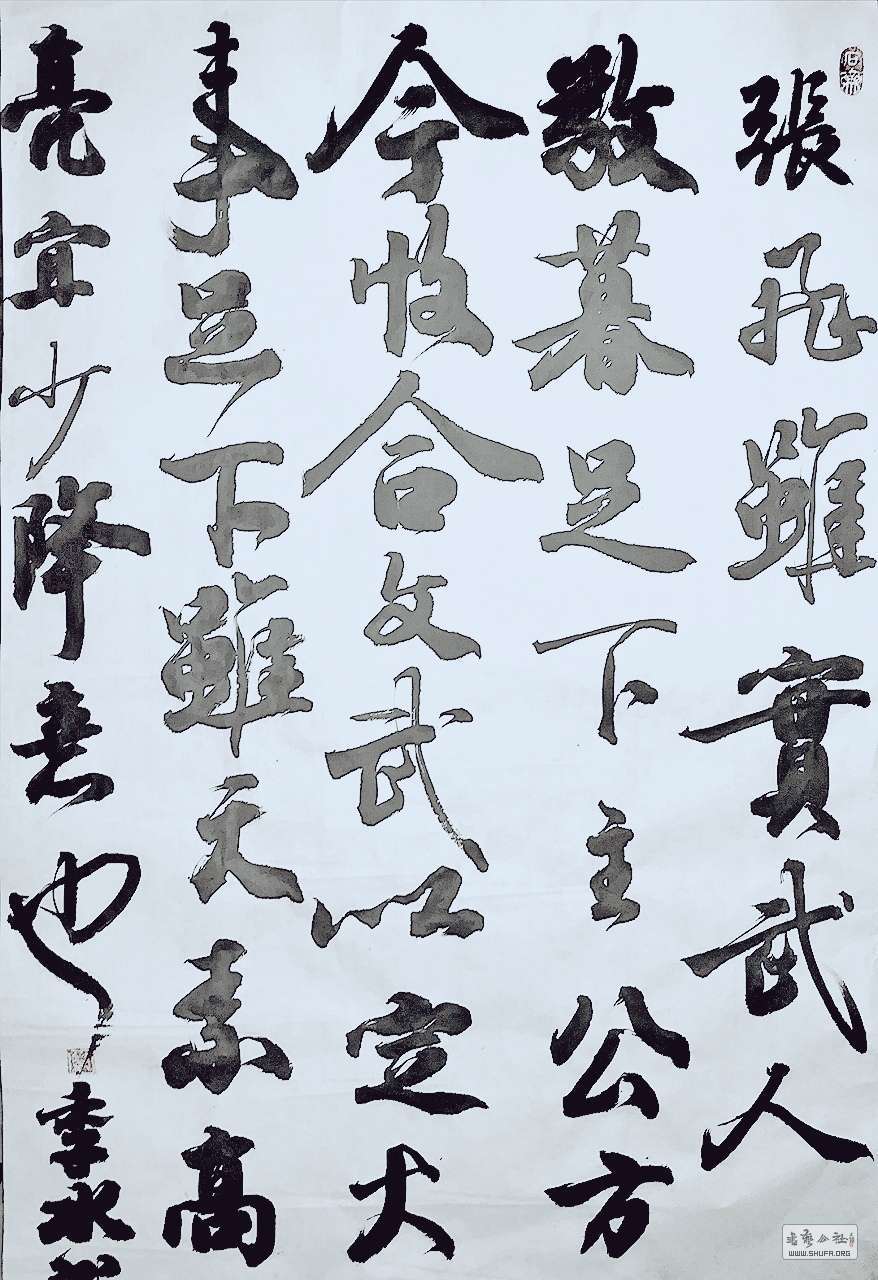 張飛雖實武人
敬慕足下主公方
今收合文武以定大
事足下雖天素高
亮宜少降意也 李水
WWW.SHUFA.ORG